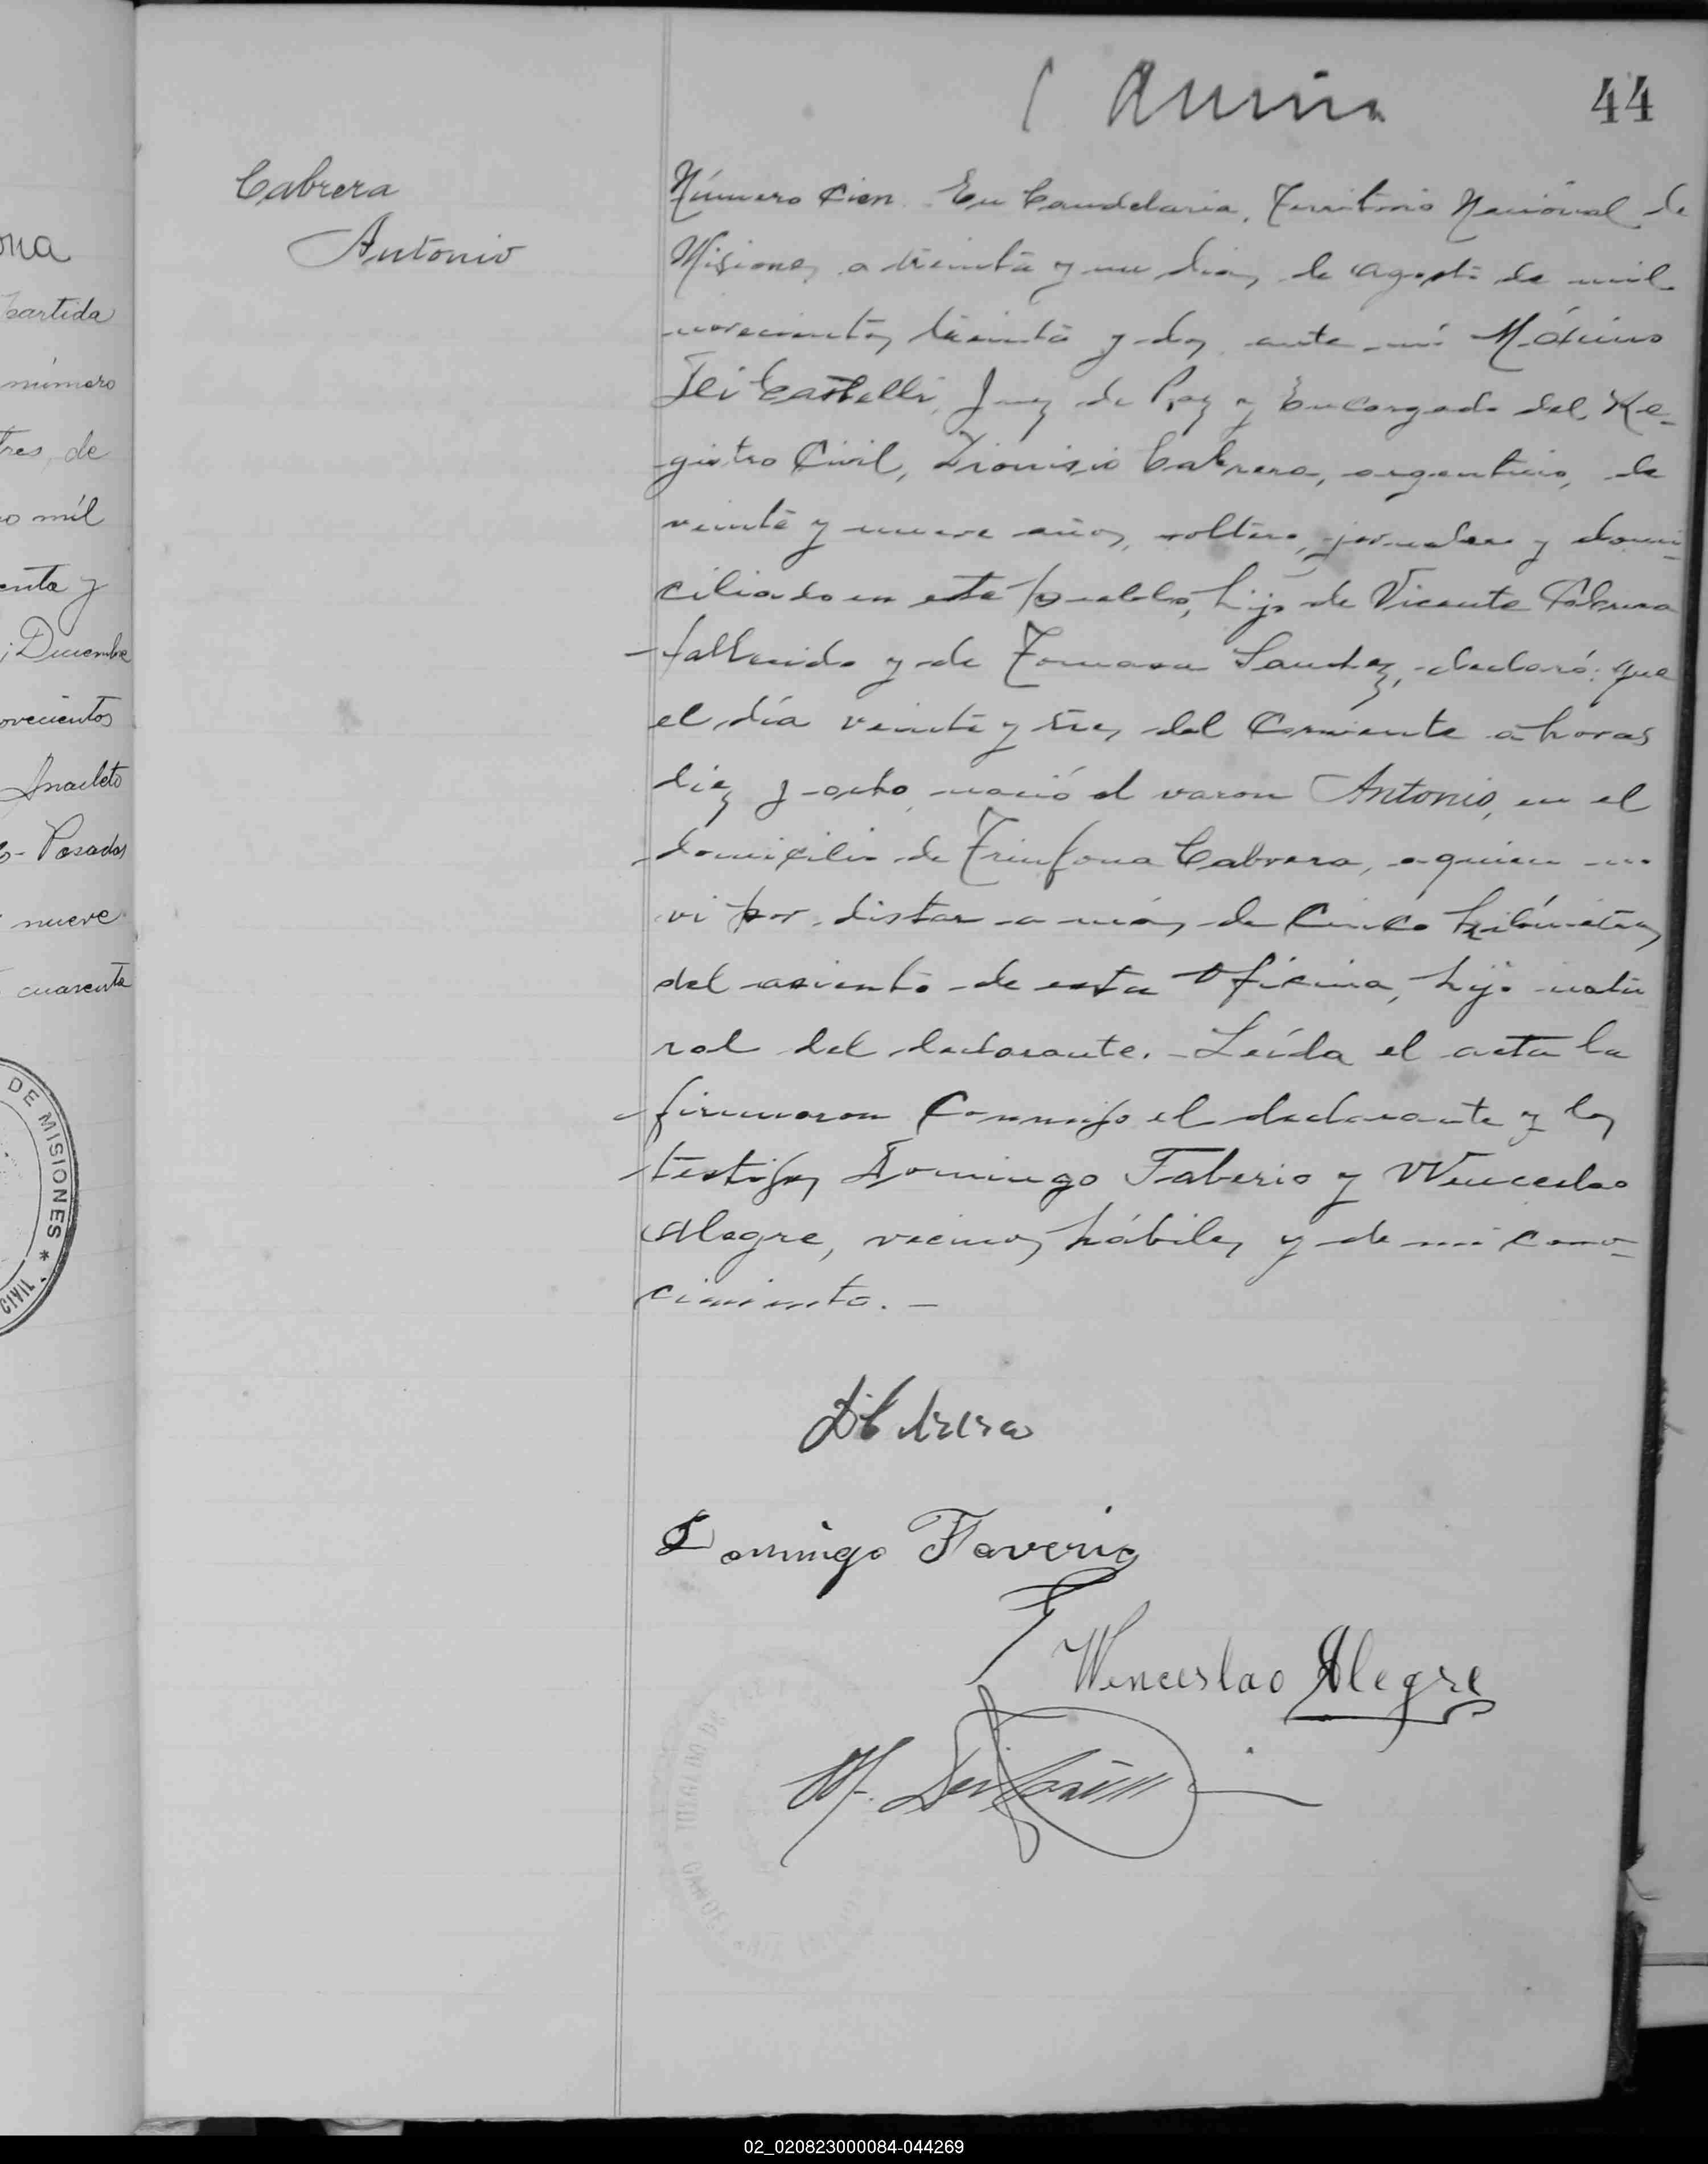 44
Cabrera
Antonio
Número Cien. En Candelaria, Territorio Nacional de
Misiones, a treinta y un dias, de Agosto de mil
novecientos treinta y dos, ante mí Máximo
Dei Castelli, Juez de Paz y Encargado del Re-
gistro Civil, Dionisio Cabrera, argentino, de
veinte y nueve años, soltero, jornalero y domi-
ciliado en este pueblo, hijo de Vicente Cabrera
fallecido y de Tomasa Sanchez, declaró: que
el día veinte y tres del Corriente a horas
diez y ocho, nació el varon Antonio, en el
domicilio de Trinfona Cabrera, a quien no
vi por distar a más de Cinco kilómetros
del asiento de esta Oficina, hijo natu
ral del declarante. - Leída el acta la
firmaron Conmigo el declarante y los
testigos Domingo Taberio y Wenceslao
Alegre, vecinos hábiles y de mi cono-
cimiento. -
Domingo Taverio
Wenceslao Alegre
M. Dei Castelli
ona
Partida
número
tres, de
o mil
enta y
Diciembre
ovecientos
Anacleto
- Posadas
nueve
cuarenta
DE MISIONES *
CIVIL
02_020823000084-044269